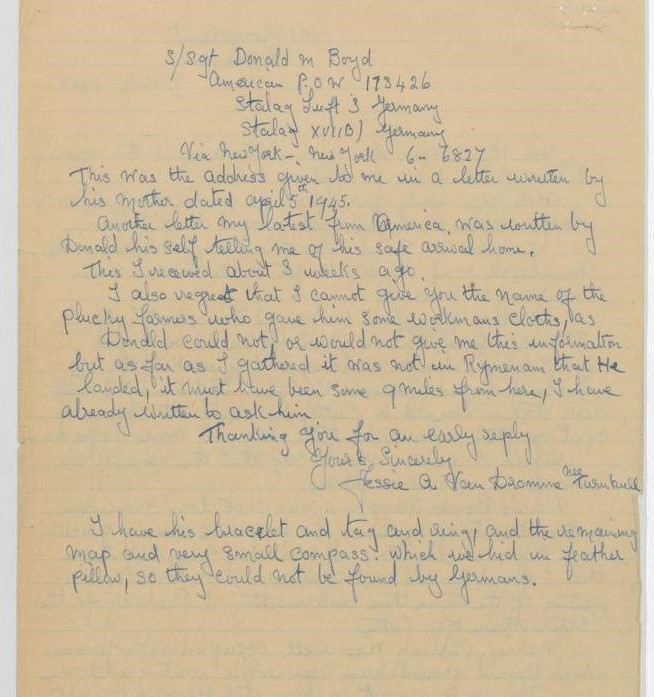 S/Sgt Donald M Boyd
American P.O.W 173426
Stalag Luft 3 Germany
Stalag XVII B) Germany
Via New York -, New York 6 - 6827
This was the address given to me in a letter written by
his mother dated april 5th 1945.
Another letter my latest from America, was written by
Donald his self telling me of his safe arrival home.
This I received about 3 weeks ago.
I also regret that I cannot give you the name of the
plucky farmers who gave him some workmans cloths, as
Donald could not, or would not give me this information
but as far as I gathered it was not in Rymenam that He
landed, it must have been some 9 miles from here, I have
already written to ask him
Thanking you for an early reply
Yours Sincerely
Jessie A Van Dromme nee Turnbull
I have his bracelet and tag and ring, and the remaining
map and very small compass. which we hid in feather
pillow, so they could not be found by Germans.